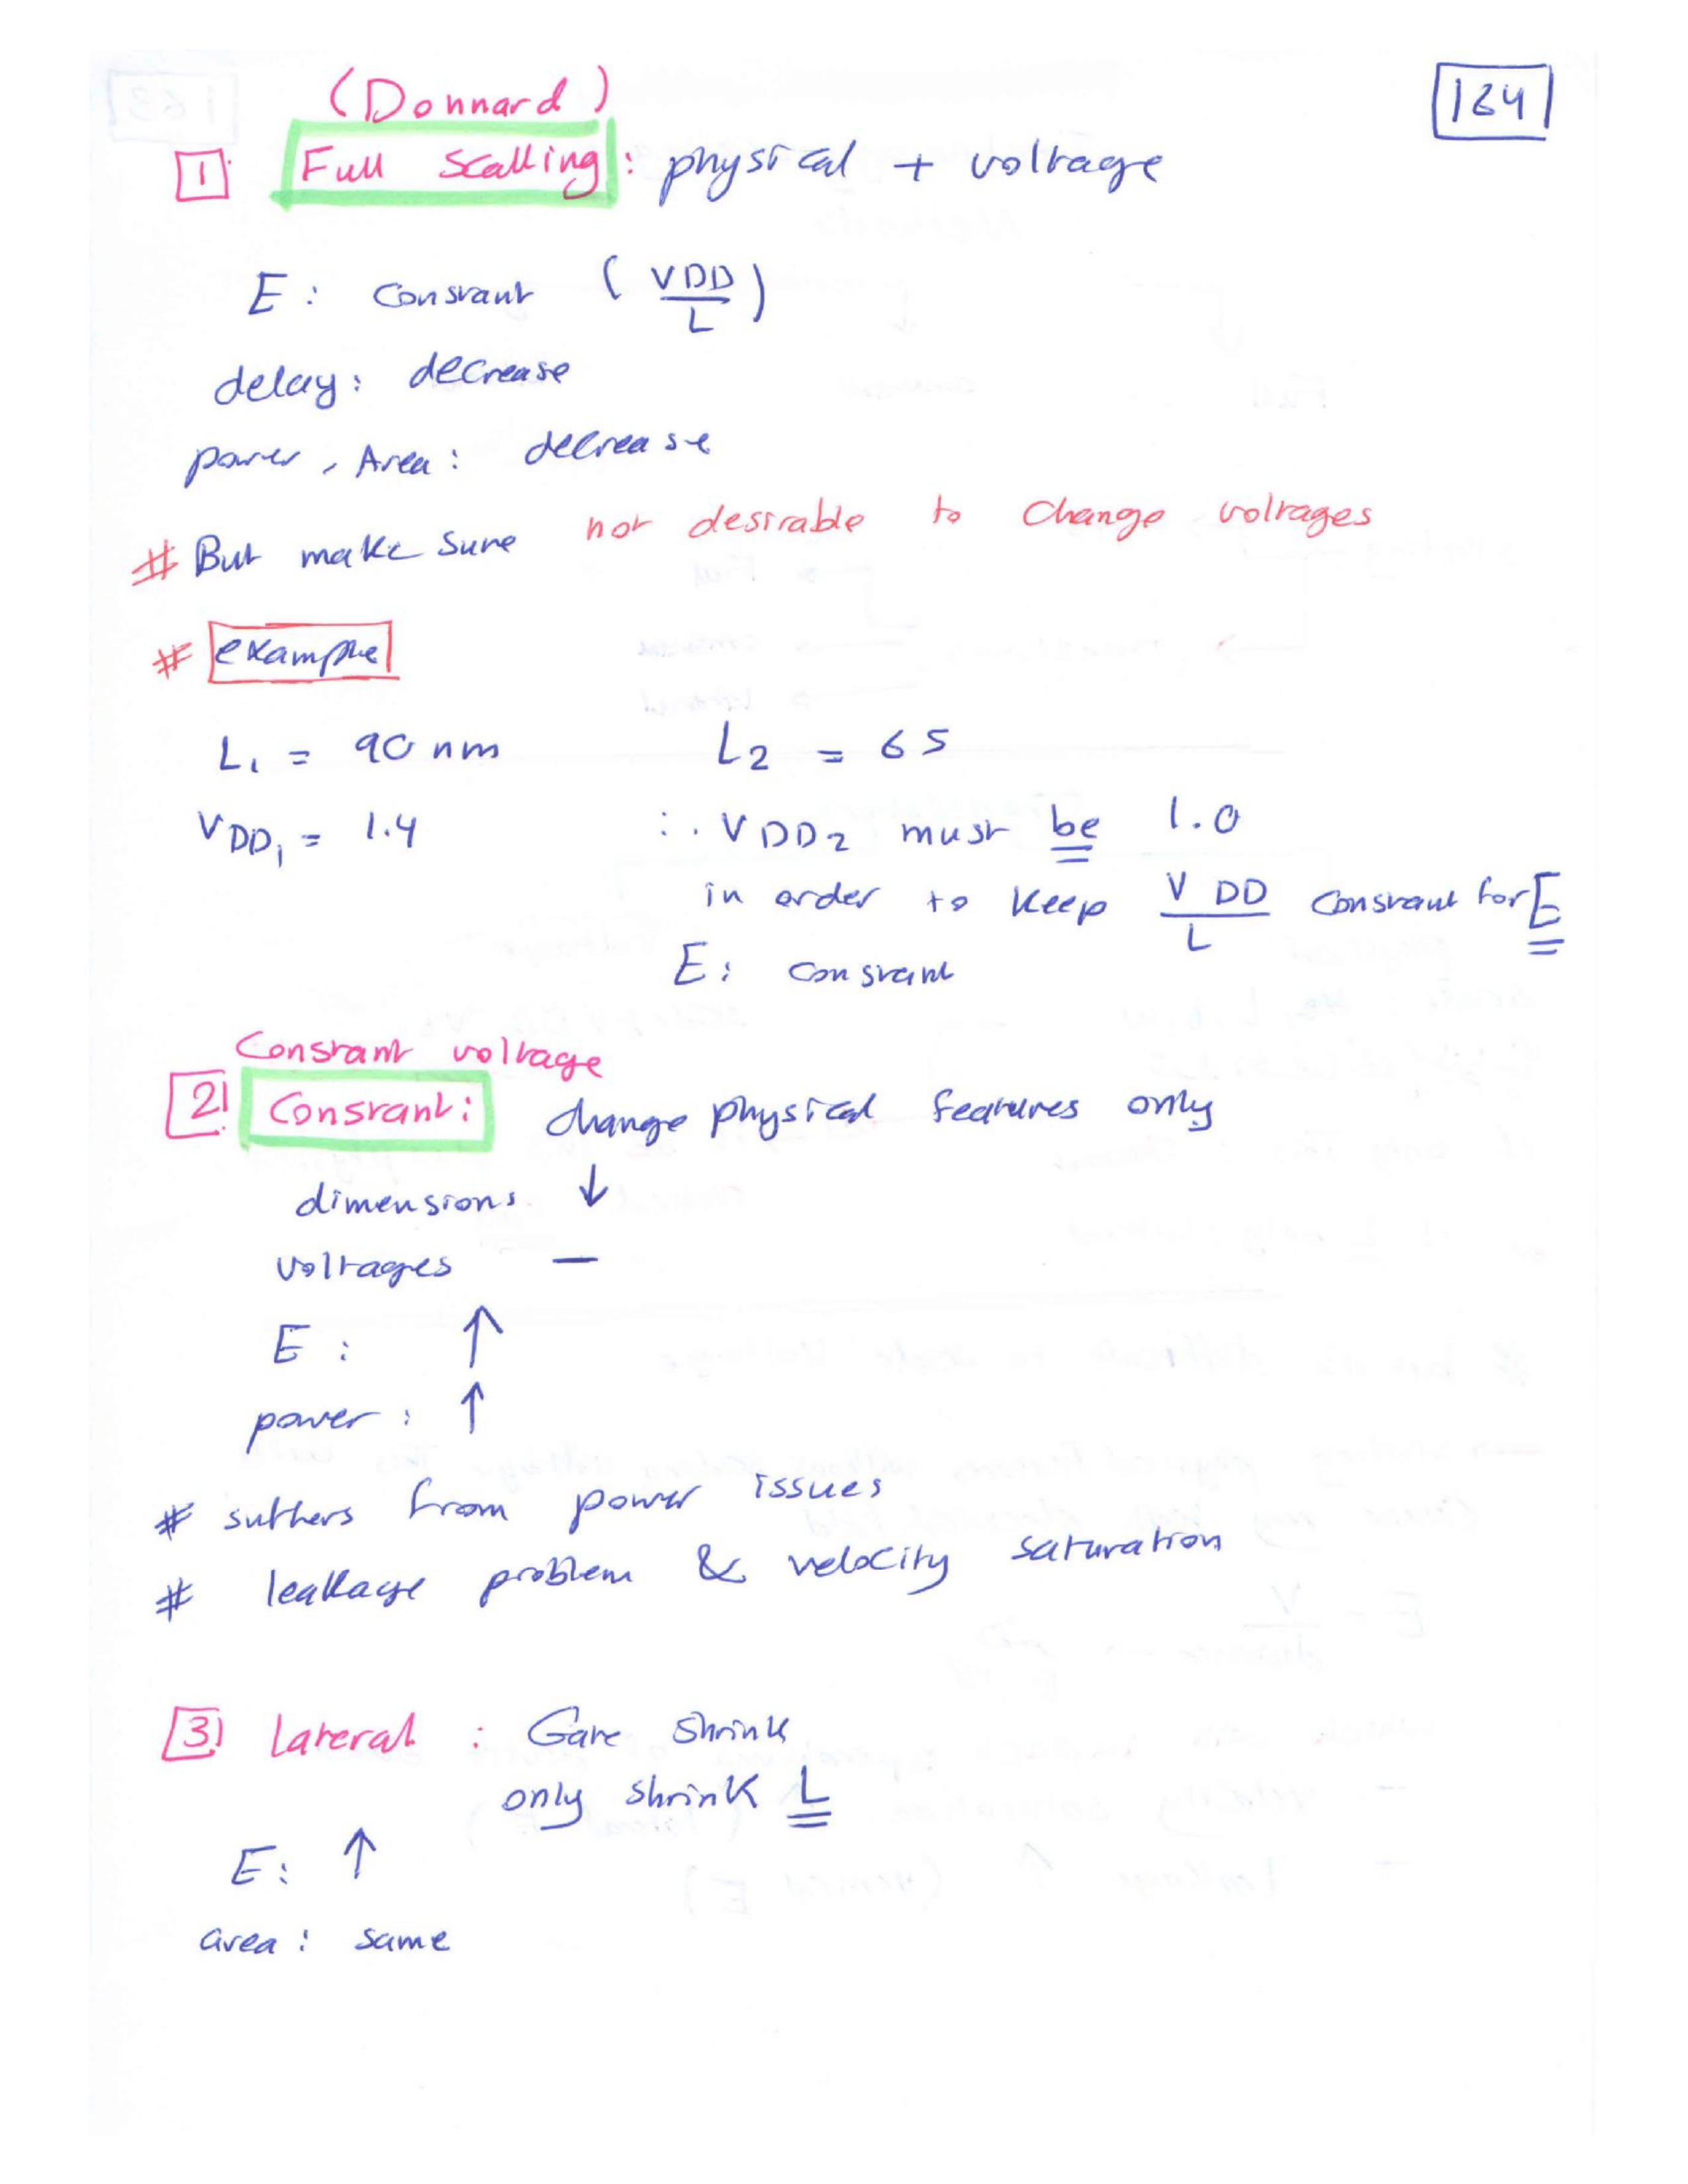 (Donnard)
164
1 Full Scalling : physical + voltage
E : Constant ( VDD / L )
delay : decrease
power , Area : decrease
# But make sure not desirable to change voltages
# example
L1 = 90 nm L2 = 65
VDD1 = 1.4 ∴ VDD2 must be 1.0
in order to keep VDD / L constant for E
E : constant
Constant voltage
2 Constant : change physical features only
dimensions ↓
voltages —
E : ↑
power : ↑
# suffers from power issues
# leakage problem & velocity saturation
3 lateral : Gate shrink
only shrink L
E : ↑
area : same